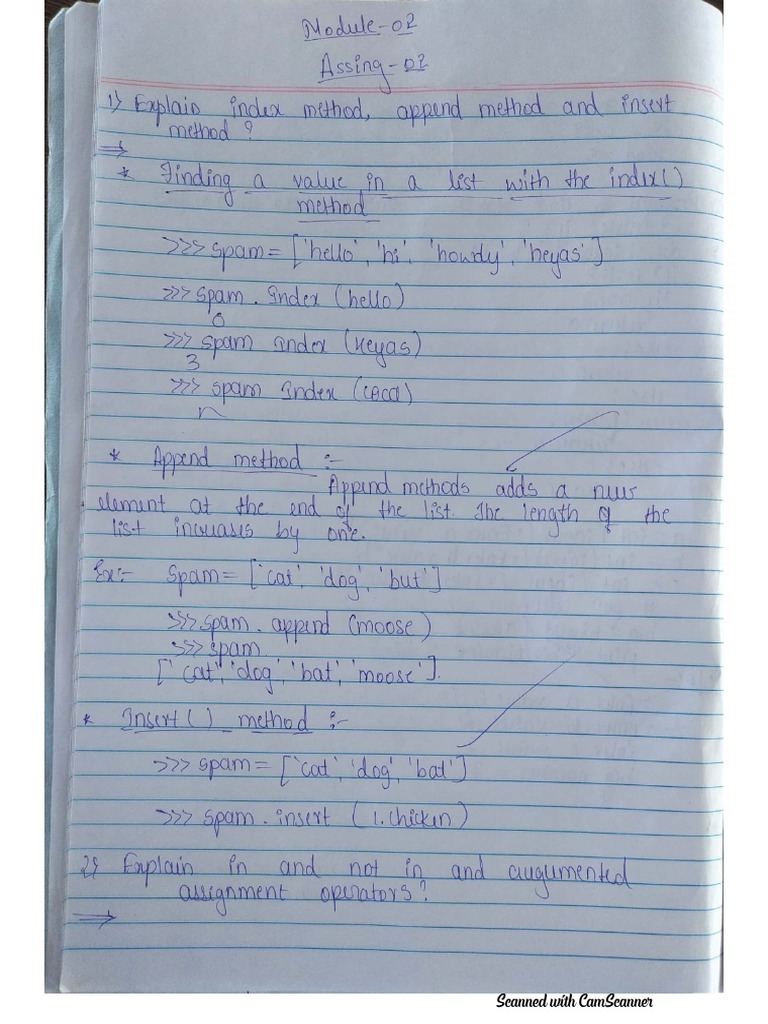 Module-02
Assing-02
1) Explain index method, append method and insert
method?
⇒
* Finding a value in a list with the index()
method
>>> spam = ['hello', 'hi', 'howdy', 'heyas']
>>> spam.index (hello)
0
>>> spam index (heyas)
3
>>> spam index
* Append method :-
Append methods adds a new
element at the end of the list. The length of the
list increases by one.
Ex:- Spam = ['cat', 'dog', 'but']
>>> spam.append (moose)
>>> spam.
['cat', 'dog', 'bat', 'moose'].
* Insert() method :-
>>> spam = ['cat', 'dog', 'bat']
>>> spam.insert (1.chicken)
2) Explain in and not in and augumented
assignment operators?
⇒
Scanned with CamScanner